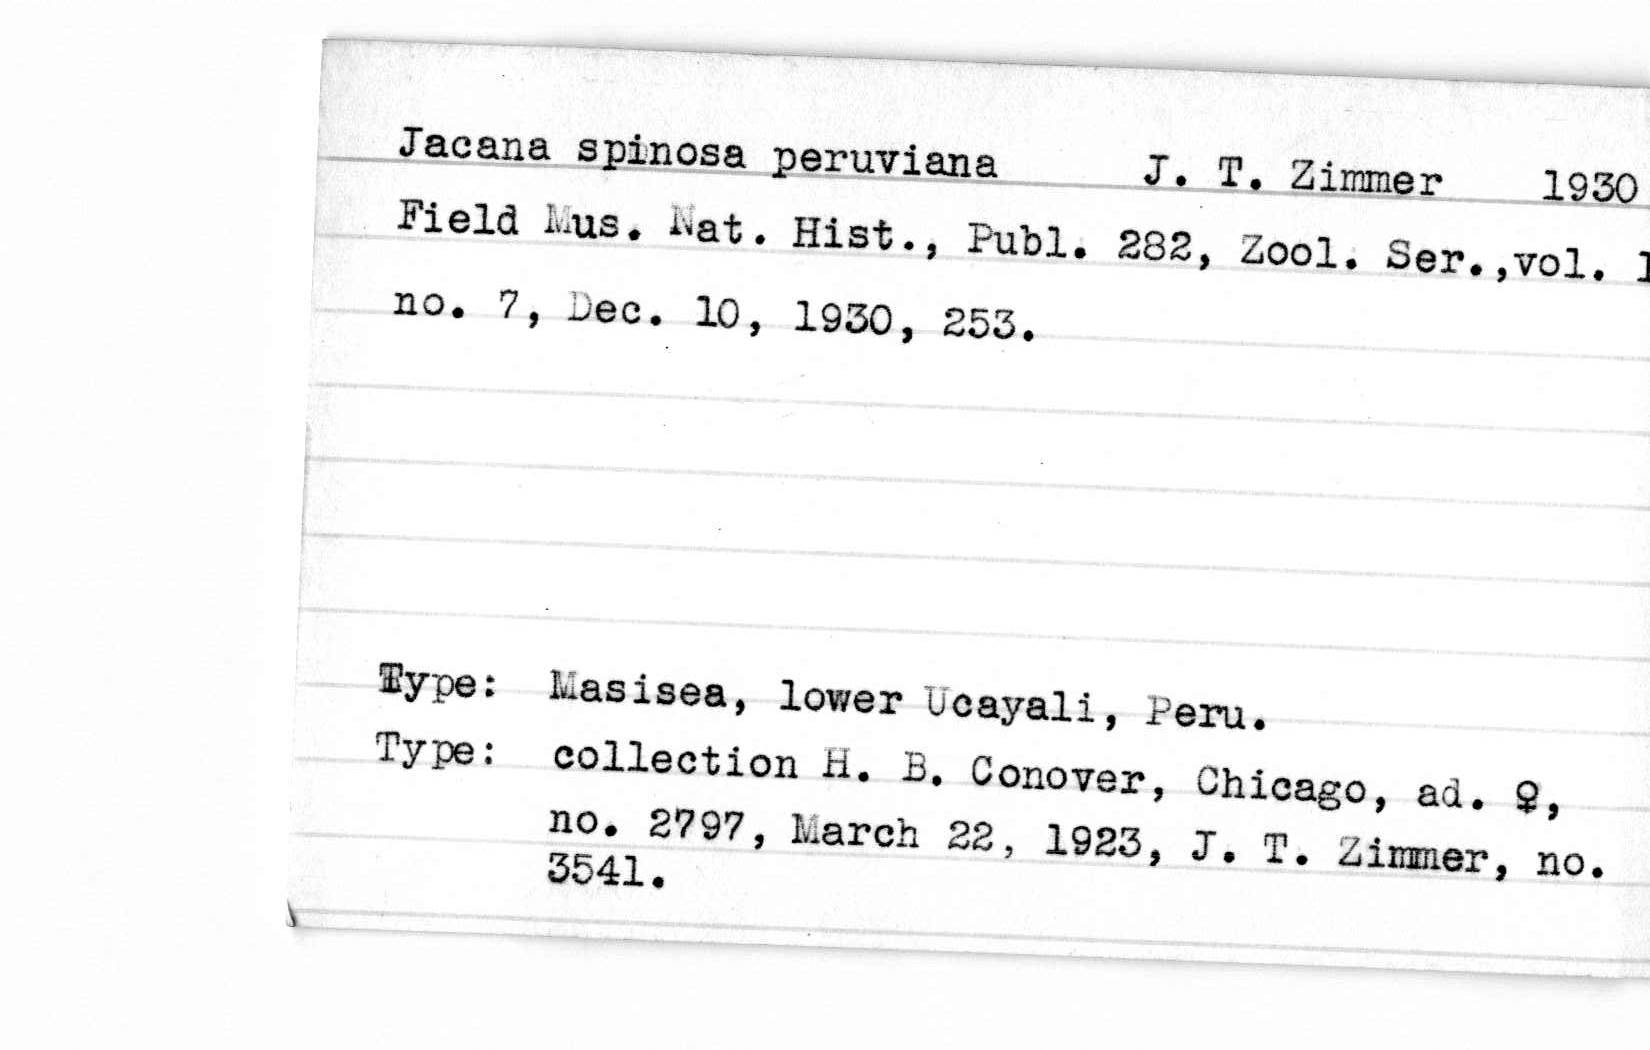 Jacana spinosa peruviana J. T. Zimmer 1930
Field Mus. Nat. Hist., Publ. 282, Zool. Ser.,vol. 1
no. 7, Dec. 10, 1930, 253.
Type: Masisea, lower Ucayali, Peru.
Type: collection H. B. Conover, Chicago, ad. ♀,
no. 2797, March 22, 1923, J. T. Zimmer, no.
3541.